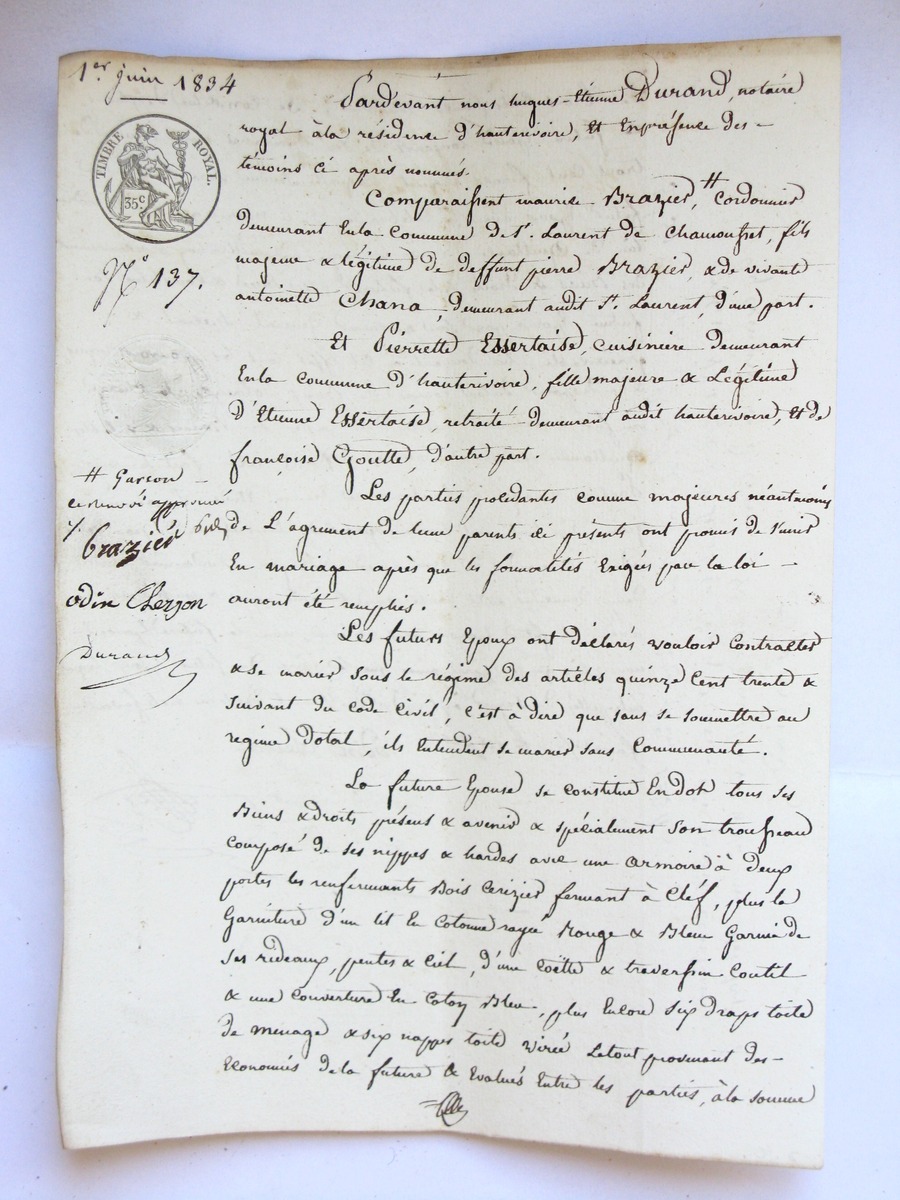 1er juin 1834
TIMBRE ROYAL.
35c.
N° 137.
Pardevant nous hugues-Etienne Durand, notaire
royal à la résidence d'hauterivoire, et En présence des-
témoins ci après nommés.
Comparaissent maurice Brazier, # Cordonnier
demeurant En la Commune de St. Laurent de Chamousset, fils
majeur & légitime de deffunt pierre Brazier, & de vivante
antoinette Chana, demeurant audit St. Laurent, d'une part.
Et Pierrette Essertaise, cuisinière demeurant
En la Commune d'hauterivoire, fille majeure & Légitime
D'Etienne Essertaise, retraité demeurant audit hauterivoire, Et de
françoise Goutte, d'autre part.
# Garcon
ce renvoi approuvé
brazier
odin Cherzon
Durand
Les parties procédantes comme majeures néantmoins
de L'agrément de leurs parents ici présents ont promis de s'unir
En mariage après que les formalités Exigées par la loi -
auront été remplies.
Les futurs Epoux ont déclarés vouloir Contracter
& se marier sous le régime des articles quinze Cent trente &
suivant du Code Civil, c'est à dire que sans se soumettre au
regime Dotal, ils Entendent se marier sans Communauté.
La future Epouse se constitue En dot tous ses
Biens & droits présens & avenir & spécialement son trousseau
Composé de ses nippes & hardes avec une armoire à deux
portes les renfermants Bois Cerizier fermant à Cléf, plus la
Garniture d'un lit En Cotonne rayée Rouge & Bleue Garnie de
ses rideaux, pentes & Ciel, d'une Coëtte & traversin Coutil
& une Couverture En Coton Bleu, plus Encore six draps toile
de menage & six nappes toile virée Le tout provenant des-
Economies de la future & Evalués Entre les parties, à la somme